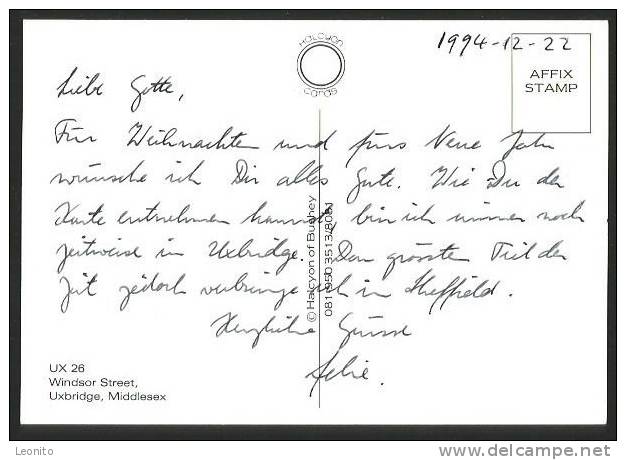 1994-12-22
Halcyon Cards
AFFIX
STAMP
Liebe Gotte,
Für Weihnachten und fürs Neue Jahr
wünsche ich Dir alles Gute. Wie Du der
Karte entnehmen kannst, bin ich immer noch
zeitweise in Uxbridge. Den grössten Teil der
Zeit jedoch verbringe ich in Sheffield.
Herzliche Grüsse
© Halcyon of Bushey
UX 26
Windsor Street,
Uxbridge, Middlesex
Leonito
www.delcampe.net